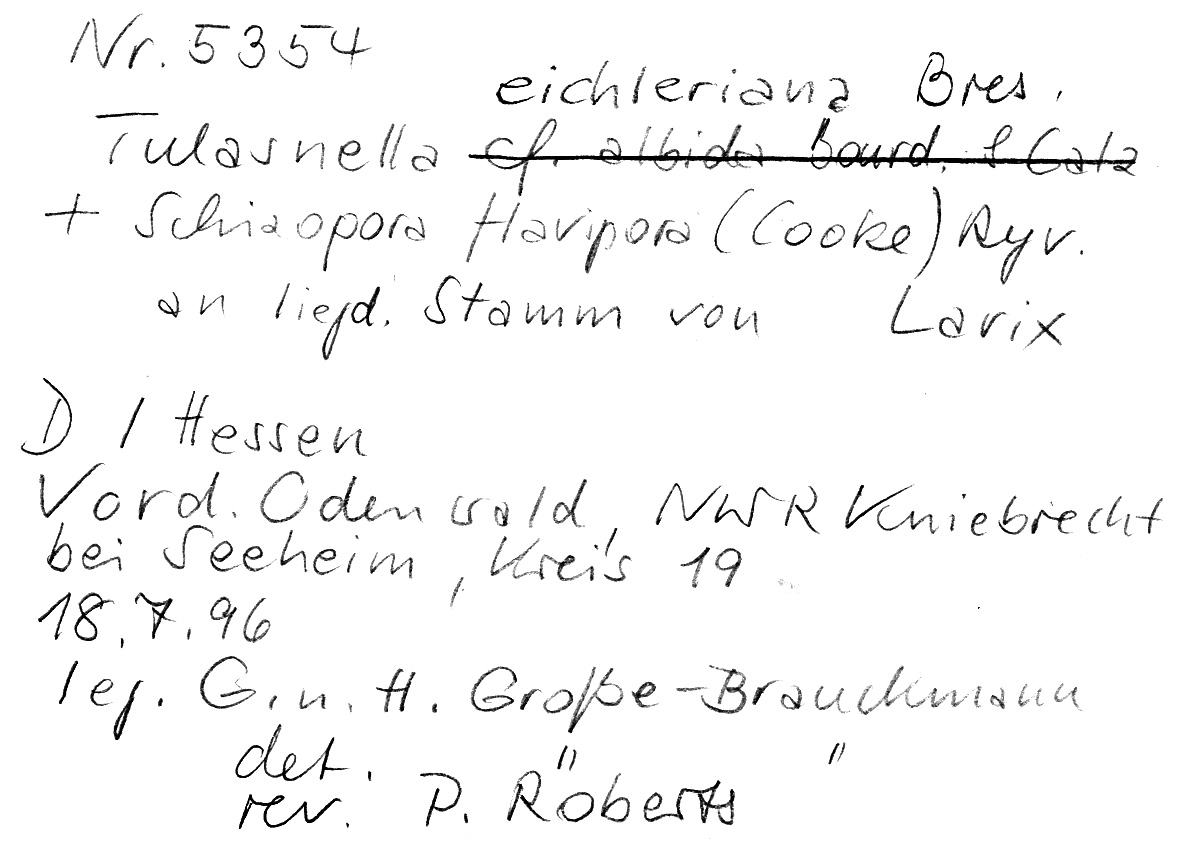 Nr. 5354
eichleriana Bres.
Tulasnella cf. albida Bourd. & Galz
+ Schizopora flavipora (Cooke) Ryv.
an liegd. Stamm von Larix
D / Hessen
Vord. Odenwald, NWR Kniebrecht
bei Seeheim, Kreis 19
18.7.96
leg. G. u. H. Große-Brauckmann
det. " "
rev. P. Roberts